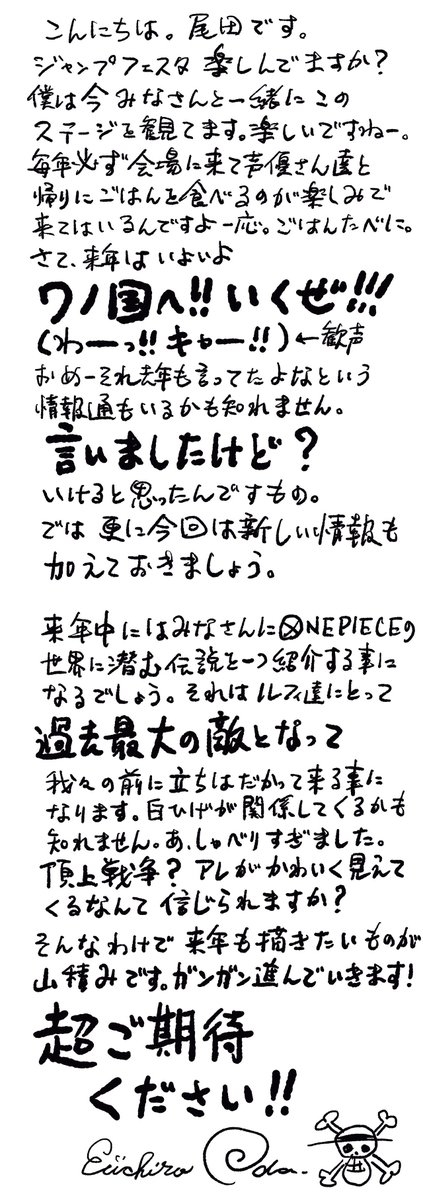 こんにちは。尾田です。
ジャンプフェスタ 楽しんでますか?
僕は今みなさんと一緒にこの
ステージを観てます。楽しいですねー。
毎年必ず会場に来て声優さん達と
帰りにごはんを食べるのが楽しみで
来てはいるんですよ一応。ごはんたべに。
さて、来年はいよいよ
ワノ国へ!! いくぜ!!!
(わーっ!! キャー!!)←歓声
おめーそれ去年も言ってたよなという
情報通もいるかも知れません。
言いましたけど?
いけると思ったんですもの。
では 更に今回は新しい情報も
加えておきましょう。
来年中にはみなさんにONEPIECEの
世界に潜む伝説を一つ紹介する事に
なるでしょう。それはルフィ達にとって
過去最大の敵となって
我々の前に立ちはだかって来る事に
なります。白ひげが関係してくるかも
知れません。あ、しゃべりすぎました。
頂上戦争? アレがかわいく見えて
くるなんて信じられますか?
そんなわけで 来年も描きたいものが
山積みです。ガンガン進んでいきます!
超ご期待
ください!!
Eiichiro Oda.